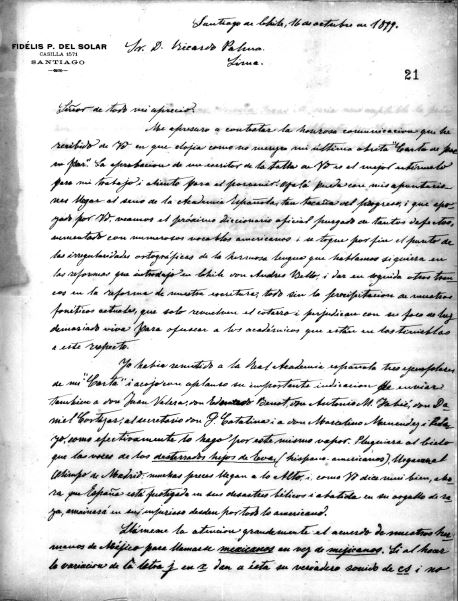 Santiago de Chile, 16 de octubre de 1899.
FIDÉLIS P. DEL SOLAR
CASILLA 1571
SANTIAGO
Sr. D. Ricardo Palma
Lima.
21
Señor de todo mi aprecio:
Me apresuro a contestar la honrosa comunicacion que he
recibido de Vd en que elojia como no merezco mi última abierta "Carta
por". La aprobacion de un escritor de la talla de Vd es el mejor
para mi trabajo i aliento para el porvenir. Ojalá pueda con mis apuntacio-
nes llegar al seno de la Academia Española, tan del progreso, i que apo-
yado por Vd. veamos el próximo Diccionario oficial purgado de tantos defectos,
aumentado con numerosos vocablos americanos i se toque por fin el punto de
las irregularidades ortográficas de la hermosa lengua que hablamos siquiera en
las reformas que introdujo en Chile don Andres Bello, i dar en seguida otros tran-
cos en la reforma de nuestra escritura, todo sin la precipitacion de nuestros
fonéticos actuales, que solo revuelven el cotarro i perjudican con su foco de luz
demasiado viva para ofuscar a los académicos que están en las tinieblas
a este respecto.
Yo habia remitido a la Real Academia española tres ejemplares
de mi "Carta" i acojo con aplauso su importante indicacion de enviar
tambien a don Juan Valera, don Benot, don Antonio M. Fabié, don Da-
niel Cortázar, al secretario don Catalina i a don Marcelino Menendez i Pela-
yo, como efectivamente lo hago por este mismo vapor. Pluguiera al Cielo
que las voces de los desterrados hijos de Eva, (hispano-americanos), lleguen al
Olimpo de Madrid, muchas preces llegan a lo Alto, i, como Vd dice mui bien, aho-
ra que España está en sus desastres bélicos i abatida en su orgullo de ra-
za, amainará en su injurioso desden por todo lo americano.
Llámame la atencion grandemente el acuerdo de nuestros her-
manos de Méjico para llamarse mexicanos en vez de mejicanos. Si al hacer
la variacion de la letra j en x dan a ésta su verdadero sonido de cs i no